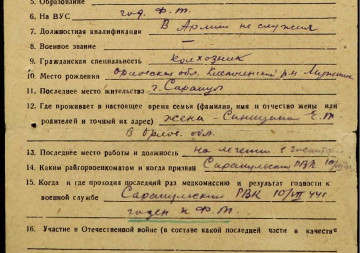 5. Образование
6. На ВУС год. Ф.Т.
7. Должностная квалификация В Армии не служил
8. Военное звание —
9. Гражданская специальность Колхозник
10. Место рождения Орловская обл. р-н
11. Последнее место жительства г. Сарапул
12. Где проживает в настоящее время семья (фамилия, имя и отчество жены или
родителей и точный их адрес) жена
в Орлов. обл.
13. Последнее место работы и должность на лечении в госпит.
14. Каким райгорвоенкоматом и когда призван Сарапульским РВК
15. Когда и где проходил последний раз медкомиссию и результат годности к
военной службе Сарапульским РВК 10/VII 44г.
годен к Ф.Т.
16. Участие в Отечественной войне (в составе какой последней части и в качестве